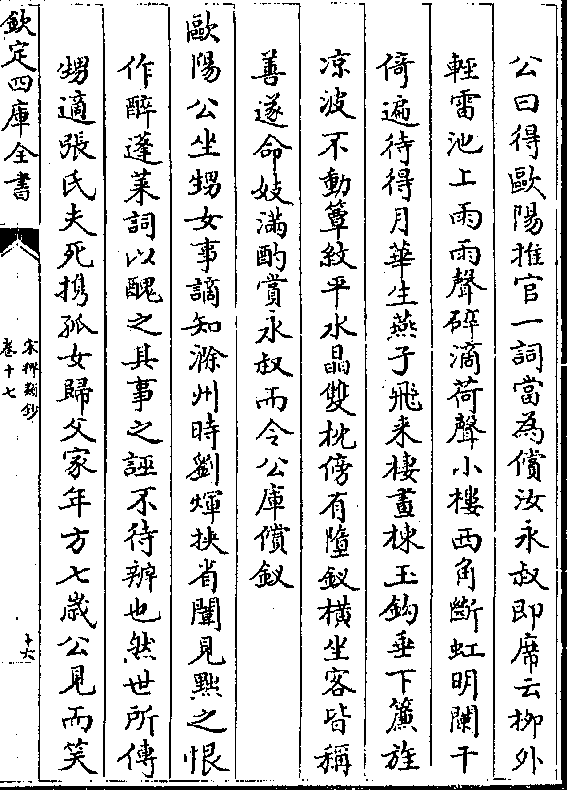 公曰得歐陽推官一詞當為償汝永叔即席云栁外
輕雷池上雨雨聲碎滴荷聲小樓西角斷虹明闌干
倚遍待得月華生燕子飛来棲畫棟玉鈎垂下簾旌
凉波不動簟紋平水晶雙枕傍有墮釵橫坐客皆稱
善遂命妓滿酌賞永叔而令公庫償釵
歐陽公坐甥女事謫知滁州時劉煇挾省闈見黜之恨
作醉蓬萊詞以醜之其事之誣不待辨也然世所傳
甥適張氏夫死携孤女歸父家年方七歲公見而笑
欽定四庫全書
宋稗類鈔
卷十七
十六